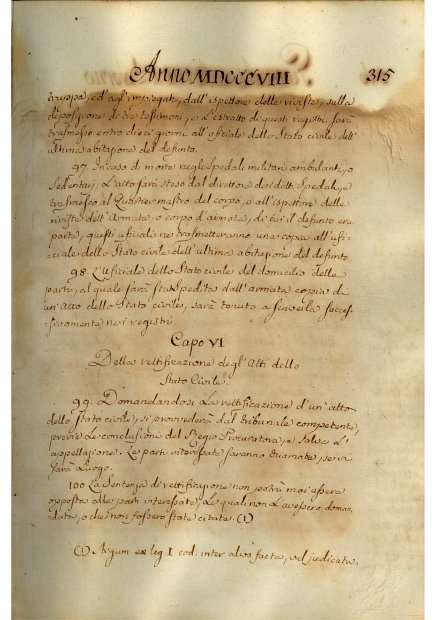 Anno MDCCCVIII 315
truppa, ed agl'impiegati, dall'ispettore delle riviste, sulla
deposizione di tre testimonj, e l'estratto di questi registri sarà
trasmesso entro dieci giorni all'ufiziale dello Stato civile dell'
ultima abitazione del defunto.
97. In caso di morte negli Spedali militari ambulanti, o
Sedentarj, l'atto sarà steso dal direttore dei detti Spedali, e
trasmesso al Quartier mastro del corpo, o all'ispettore delle
riviste dell'Armata, o corpo d'armata, di cui il defunto era
parte, questi ufiziali ne trasmetteranno una copia all'ufi-
ciale dello Stato civile dell'ultima abitazione del defunto.
98. L'ufiziale dello Stato civile del domicilio delle
parti, al quale sarà Stata Spedita dall'armata copia di
un'Atto dello Stato civile, sarà tenuto a scriverla succes-
sivamente nei registri.
Capo VI
Della rettificazione degl'Atti dello
Stato Civile.
99. Domandandosi la rettificazione d'un'atto
dello Stato civile, si provvederà dal tribunale competente,
previe le conclusioni del Regio Procuratore, e salva l'
appellazione. Le parti interessate saranno chiamate, se vi
sarà luogo.
100 La Sentenza di rettificazione non potrà mai essere
opposta alle parti interessate, le quali non l'avessero doman-
data, o che non fossero state citate. (1)
(1) Argum ex leg. I cod. inter alios facta, vel judicata.